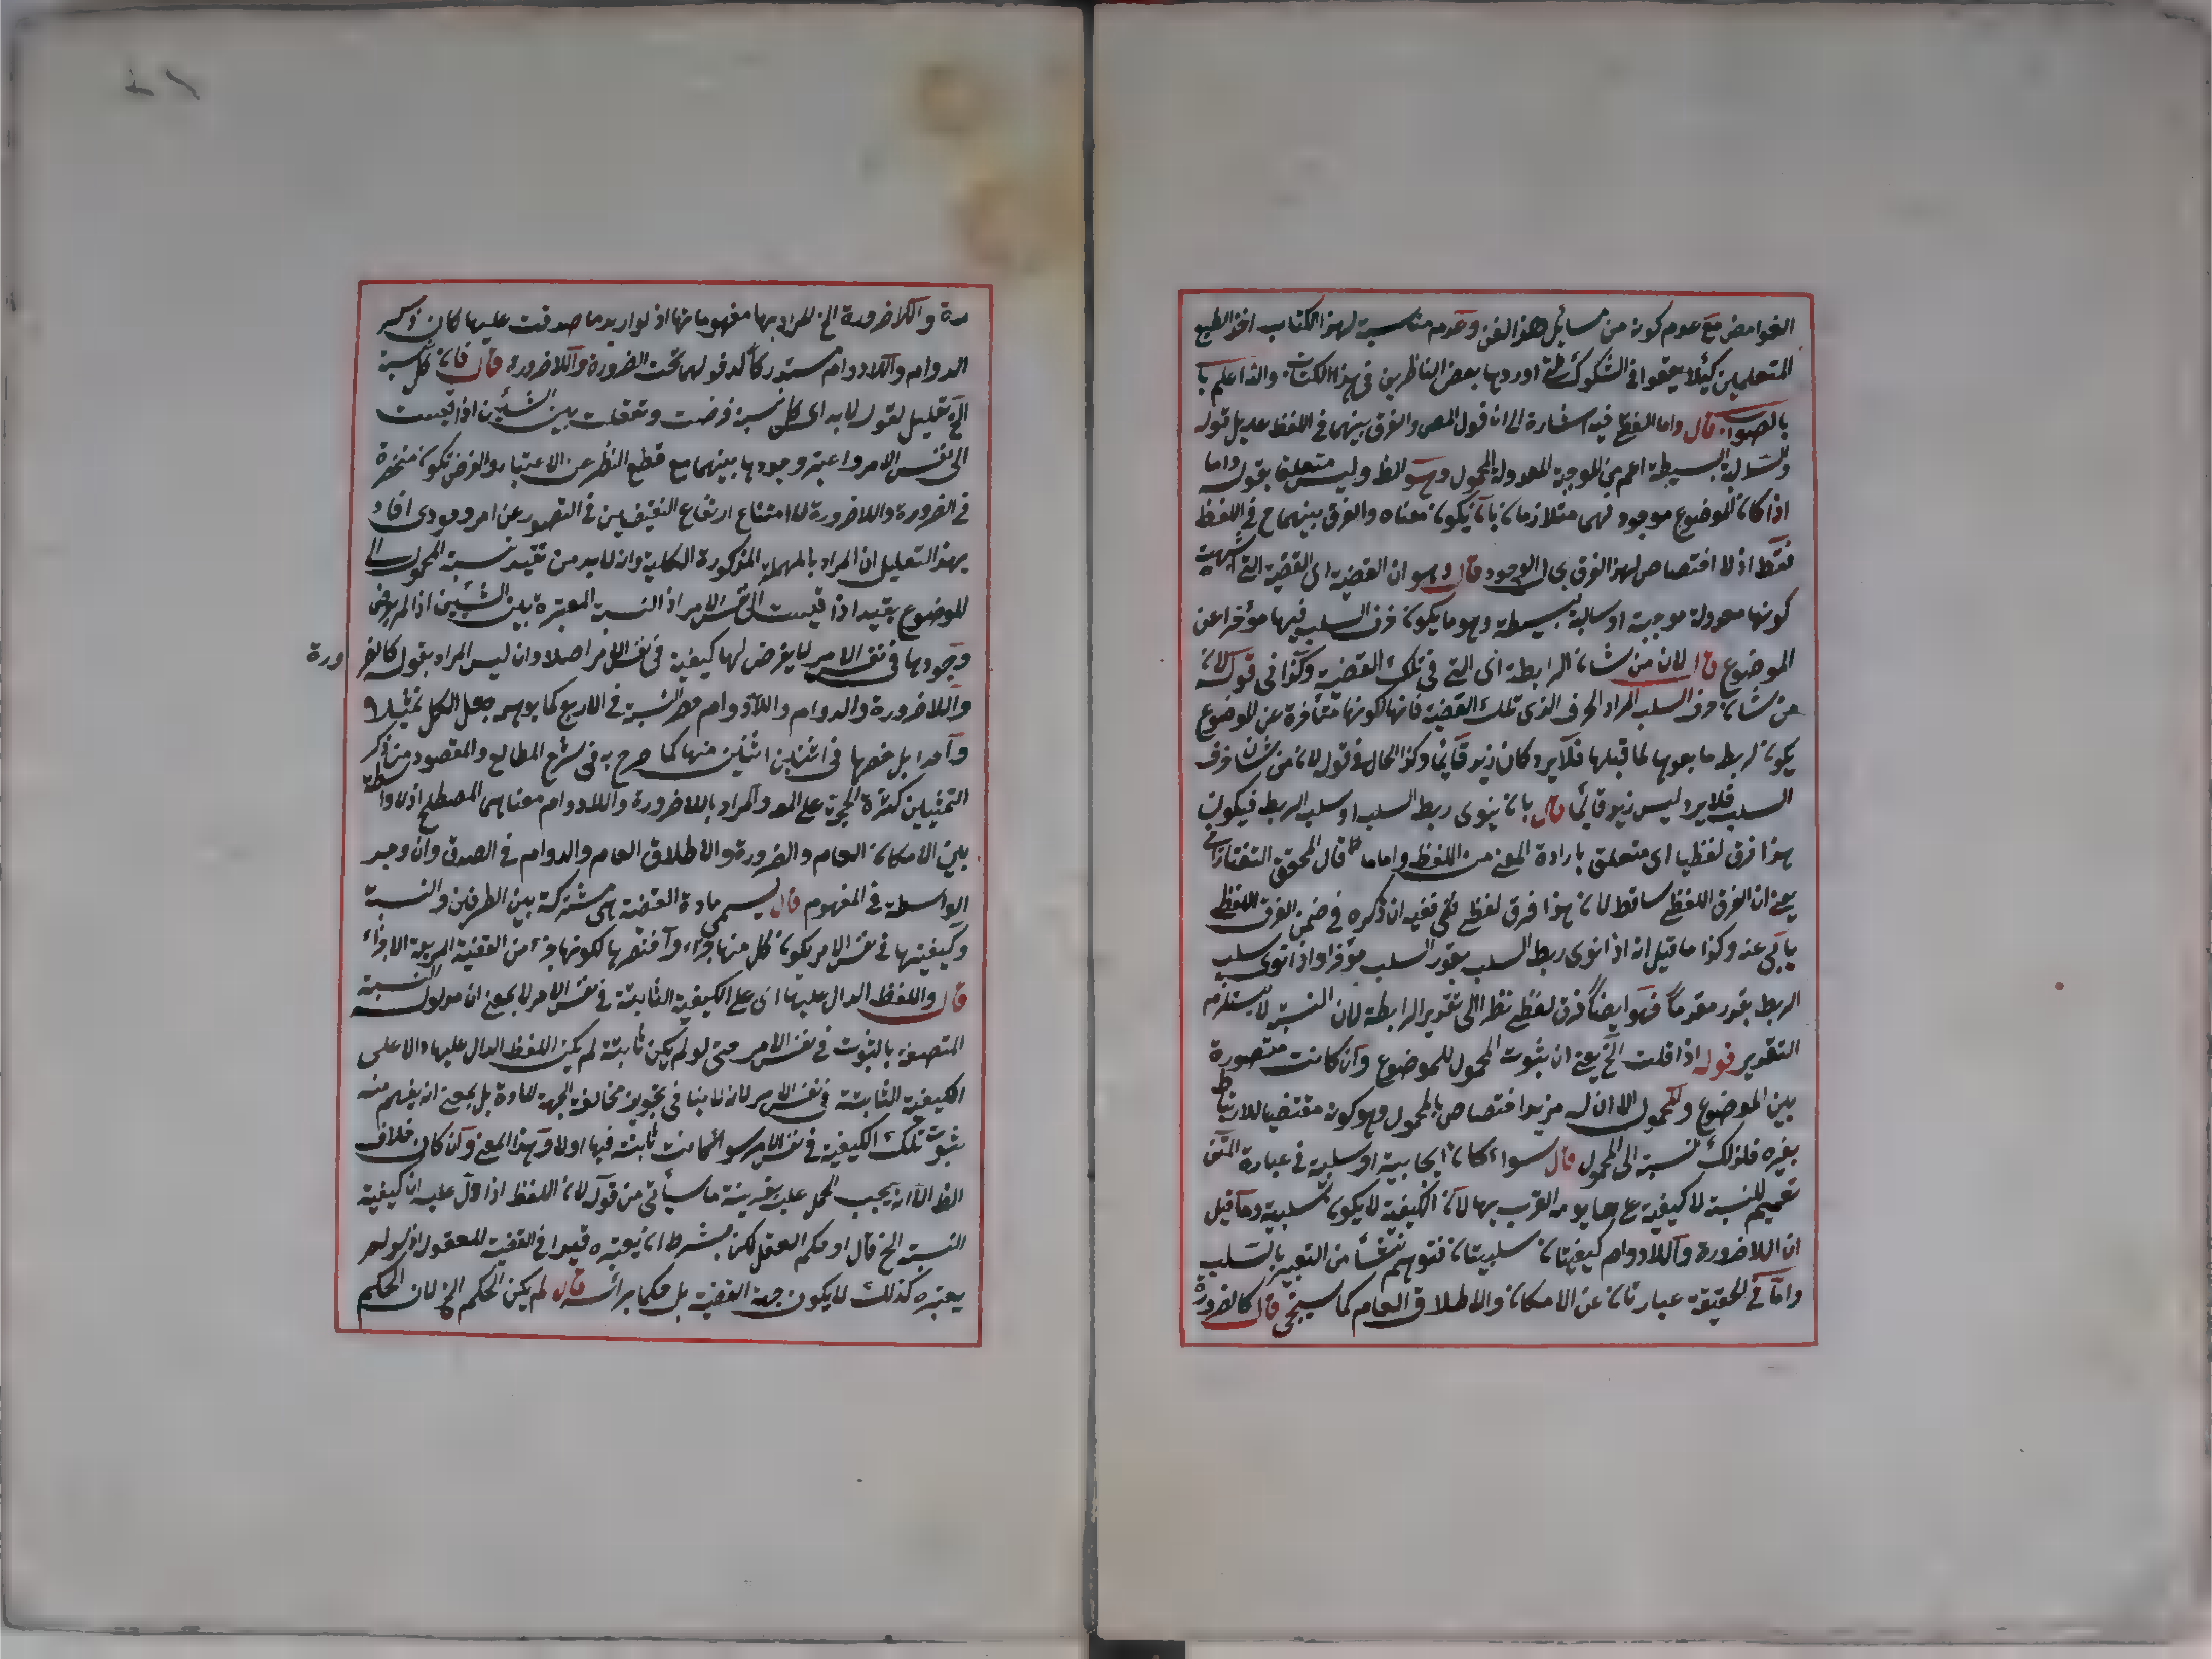 الغوامض مع عدم كونه من مسائل هذا الفن وعدم مناسبته لهذا الكتاب
المتعلمين كيلا يقعوا في الشكوك التي اوردها بعض الناظرين في هذا الكتاب والله اعلم
بالصواب قال واما اللفظي فيه اشارة الى ان قول المص والفرق بينهما في اللفظ عديل قوله
والسالبة البسيطة اعم من الموجبة المعدولة المحمول وهو الظ وليس متعلق بقوله واما
اذا كان الموضوع موجودا فهما متلازمان بان يكون معناه والفرق بينهما ح في اللفظ
فقط اذ لا اختصاص لهذا الفرق بحال الوجود قال وهو ان القضية اى القضية التي اشتبهت
كونها معدولة موجبة او سالبة بسيطة وهو ما يكون حرف السلب فيها مؤخرا عن
الموضوع قال لان من شان الرابطة اى التي في تلك القضية وكذا في قوله لان
من شان حرف السلب المراد الحرف الذى تلك القضية فانها لكونها متأخرة عن الموضوع
يكون لربط ما بعدها لما قبلها فلا يرد كان زيد قائما وكذا الحال في قوله لان من شان حرف
السلب فلا يرد ليس زيد قائما قال بان ينوى ربط السلب او سلب الربط فيكون
هذا فرق لفظيا اى متعلق بارادة المعنى من اللفظ واما ما قال المحقق التفتازاني
يعنى ان الفرق اللفظي ساقط لان هذا فرق لفظي ففيه ان ذكره في ضمن الفرق اللفظي
يأبى عنه وكذا ما قيل انه اذا نوى ربط السلب يقدر السلب مؤخرا واذا نوى سلب
الربط يقدر مقدما فهو ايضا فرق لفظي نظرا الى تقدير الرابطة لان النسبة لا يستلزم
التقدير قوله اذا قلت الخ يعنى ان ثبوت المحمول للموضوع وان كانت متصورة
بين الموضوع والمحمول الا ان له مزيد اختصاص بالمحمول وهو كونه مقتضيا للارتباط
بغيره فلذلك نسبة الى المحمول قال سواء كان ايجابية او سلبية في عبارة المتن
تعميم للنسبة لا كيفية القرب بها لان الكيفية لا يكون سلبية وما قيل
ان اللاضرورة واللادوام كيفيتان سلبيتان فتوهم نشأ من التعبير بالسلب
واما في الحقيقة عبارتان عن الامكان والاطلاق العام كما سيجئ قال كالضرورة
رة واللاضرورة الخ المراد بها مفهوماتها اذ لو اريد ما صدقت عليها كان ذكر
الدوام واللادوام مستدركا لدخولهما تحت الضرورة واللاضرورة قال فان كل نسبة
الخ تعليل لقوله لابد اى كل نسبة فرضت وتعقلت بين الشيئين اذا قيست
الى نفس الامر واعتبر وجودها بينهما مع قطع النظر عن الاعتبار والفرض يكون منحصرة
في الضرورة واللاضرورة لامتناع ارتفاع النقيضين في التصور عن امر وجودى افاد
بهذا التعليل ان المراد بالمهملة المذكورة الكلية وانه لابد من تقييد نسبة المحمول الى
الموضوع بقيد اذا قيست الى نفس الامر اذ النسبة المعتبرة بين الشيئين اذا لم يفرض
وجودها في نفس الامر لا يعرض لها كيفية في نفس الامر اصلا وان ليس المراد بقوله كالضر ورة
واللاضرورة والدوام واللادوام حصر النسبة في الاربع كما يوهمه جعل الكل تمثيلا
واحدا بل حصرها في اثنين اثنين منها كما صرح به في شرح المطالع والمقصود من ذكر
التمثيلين كثرة الجهة على المراد باللاضرورة واللادوام معناهما المصطلح اذ لا واسطة
بين الامكان العام والضرورة والاطلاق العام والدوام في الصدق وان وجد
الواسطة في المفهوم قال يسمى مادة القضية هى مشتركة بين الطرفين والنسبة
وكيفيتها في نفس الامر يكون كل منها جزء واختص بها لكونها جزء من القضية المربعة الاجزاء
قال واللفظ الدال عليها اى على الكيفية الثابتة في نفس الامر لا بمعنى ان مدلوله النسبة
المتصفة بالثبوت في نفس الامر حتى لو لم يكن ثابتة لم يكن اللفظ الدال عليها دالا على
الكيفية الثابتة في نفس الامر لانه لا ينافى تجويز مخالفة الجهة للمادة بل بمعنى انه يفهم منه
ثبوت تلك الكيفية في نفس الامر سواء كانت ثابتة فيها اولا وهذا المعنى وان كان خلاف
الظ الا انه يجب الحمل عليه بقرينة ما سيأتي من قوله لان اللفظ اذا دل عليه ان كيفية
النسبة الخ قال او حكم العقل لكن بشرط ان يعتبره قيدا في القضية المعقولة اذ لو لم
يعتبره كذلك لا يكون جهة القضية بل حكما برأسه قال لم يكن الحكم الخ لان الحكم